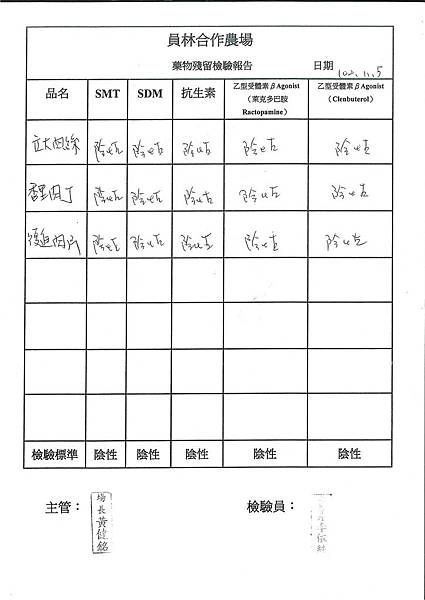 員林合作農場
藥物殘留檢驗報告 日期 102.11.5
品名 SMT SDM 抗生素 乙型受體素βAgonist（萊克多巴胺 Ractopamine） 乙型受體素βAgonist（Clenbuterol）
立大肉絲 陰性 陰性 陰性 陰性 陰性
肉丁 陰性 陰性 陰性 陰性 陰性
陰性 陰性 陰性 陰性 陰性
檢驗標準 陰性 陰性 陰性 陰性 陰性
主管： 場長黃健銘 檢驗員：